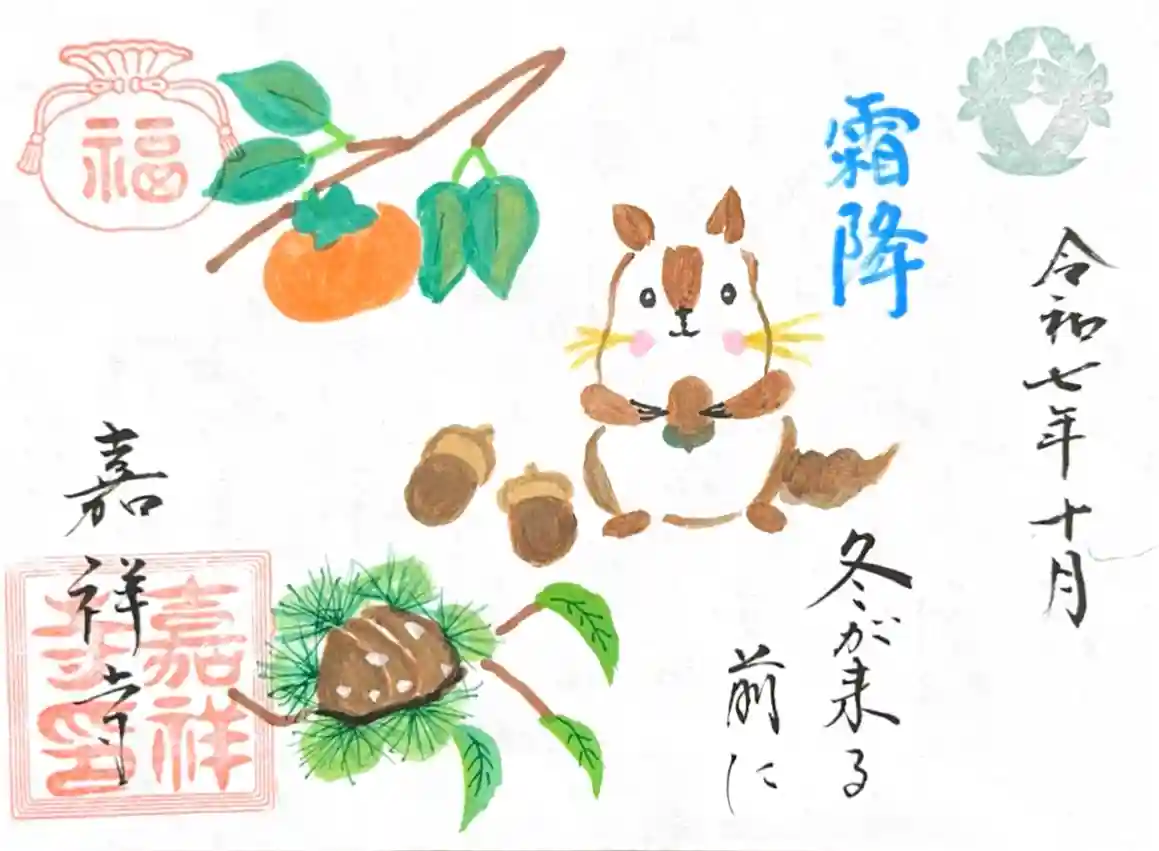 令和七年十月
霜降
冬が来る
前に
福
嘉祥寺
嘉祥
寺印